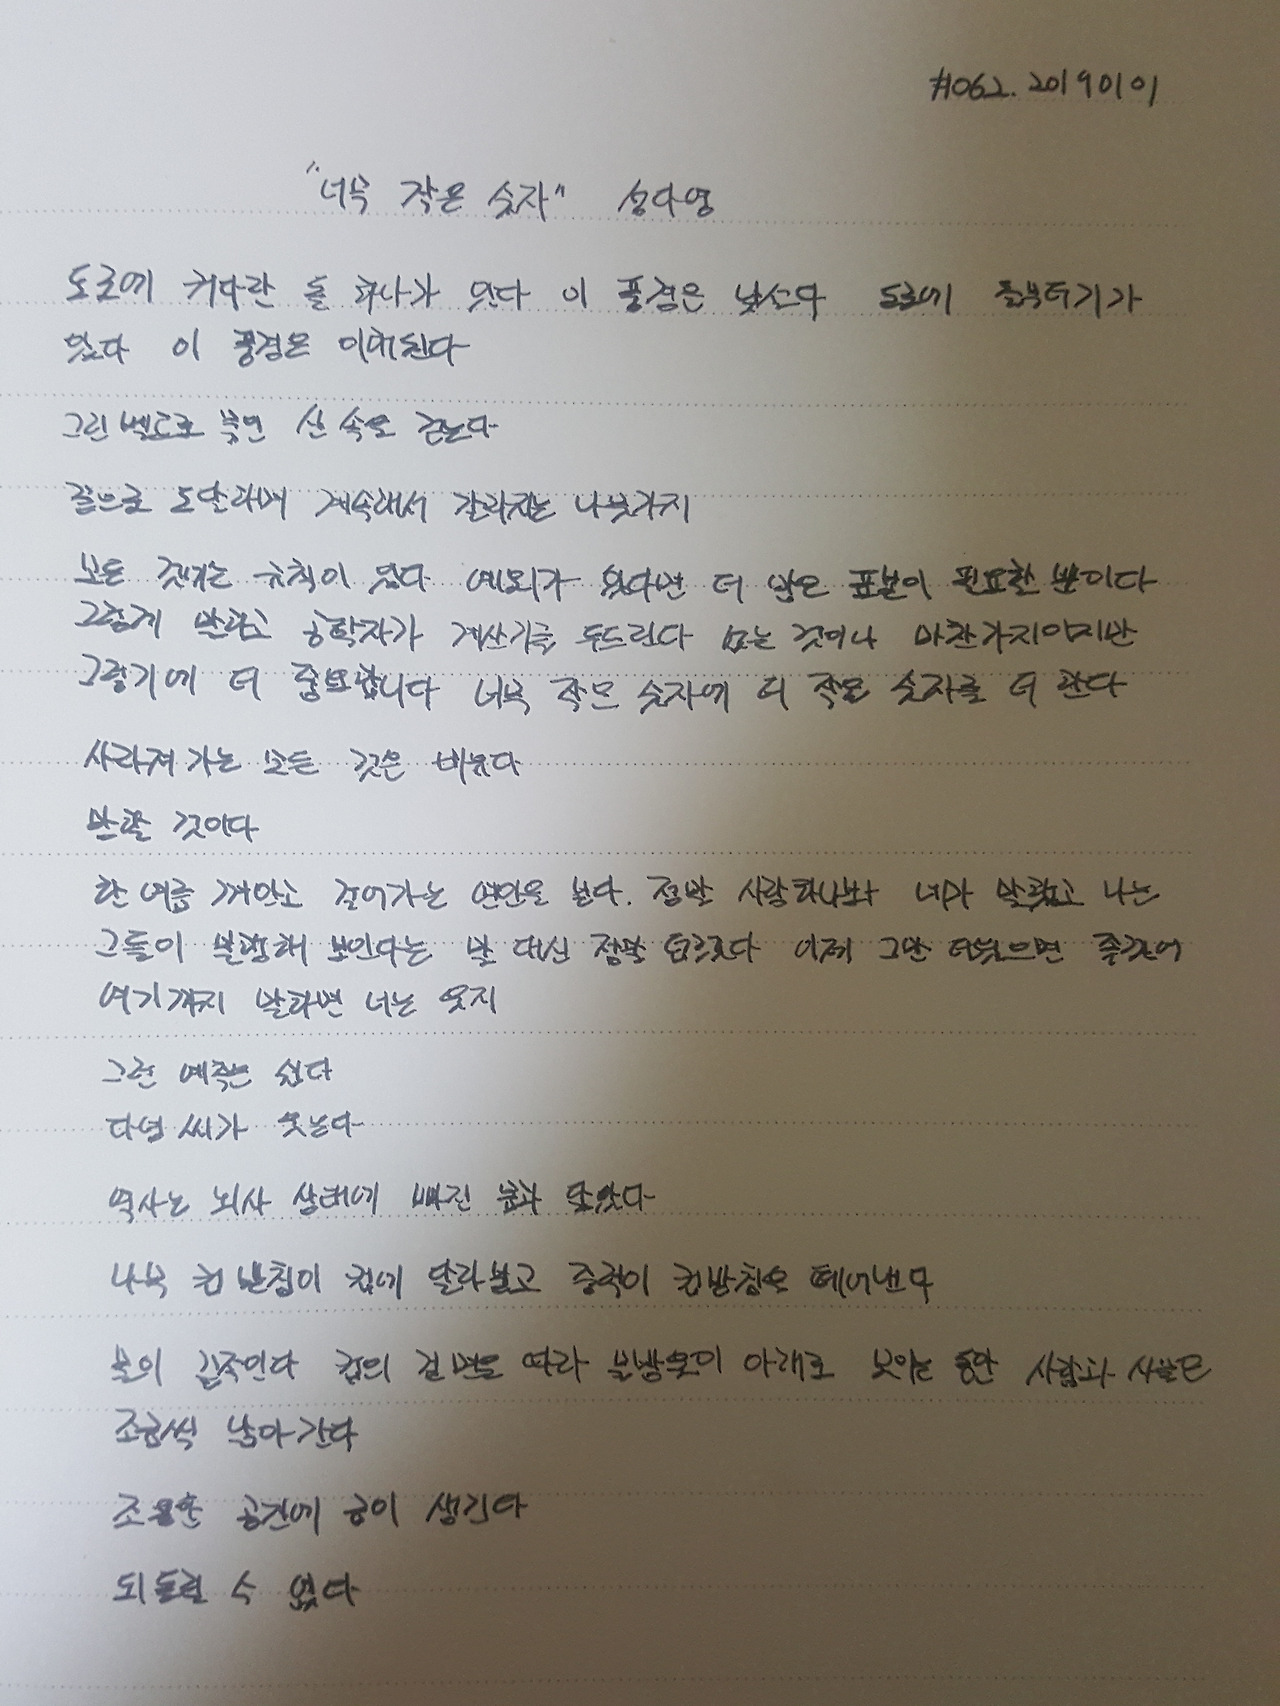 #062. 20190101
"너무 작은 숫자" 성다영
도로에 커다란 돌 하나가 있다 이 풍경은 낯설다 도로에 돌무더기가
있다 이 풍경은 이해된다
그린벨트로 묶인 산 속을 걷는다
끝으로 도달하며 계속해서 갈라지는 나뭇가지
모든 것에는 규칙이 있다 예외가 있다면 더 많은 표본이 필요할 뿐이다
그렇게 말하고 공학자가 계산기를 두드린다 없는 것이나 마찬가지이지만
그렇기에 더 중요합니다 너무 작은 숫자에 더 작은 숫자를 더 한다
사라져가는 모든 것은 비유다
망할 것이다
한 여름 껴안고 걸어가는 연인을 본다. 정말 사랑하나봐 네가 말했고 나는
그들이 불행해 보인다는 말 대신 정말 덥겠다 이제 그만 더웠으면 좋겠어
여기까지 말하면 너는 웃지
그런 예측은 쉽다
다영 씨가 웃는다
역사는 뇌사 상태에 빠진 몸과 닮았다
나무 컵 받침이 컵에 달라붙고 중력이 컵받침을 떼어낸다
물이 끈적인다 컵의 겉면을 따라 물방울이 아래로 모이는 동안 사람과 사물은
조금씩 낡아간다
조용한 공간에 금이 생긴다
되돌릴 수 없다